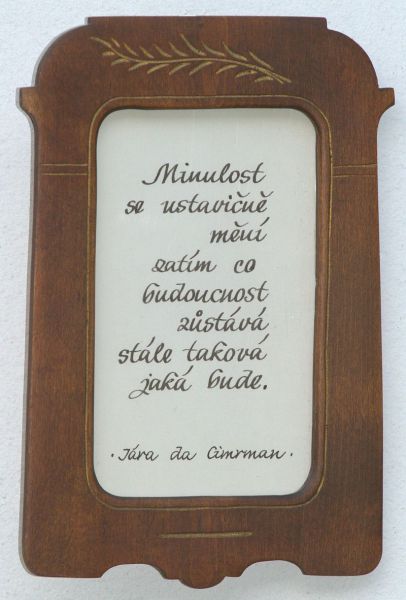 Minulost
se ustavičně
mění
zatím co
budoucnost
zůstává
stále taková
jaká bude.
· Jára da Cimrman ·